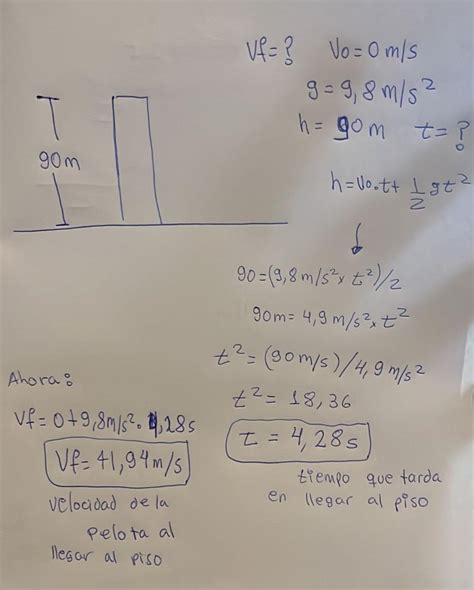 Vf=? Vo=0m/s
g=9,8m/s²
h=90m t=?
90m
h=Vo.t+ 1/2 gt²
90=(9,8m/s²x t²)/2
90m=4,9m/s²x t²
t²=(90m/s)/4,9m/s²
t²=18,36
t=4,28s
tiempo que tarda
en llegar al piso
Ahora:
Vf=0+9,8m/s².4,28s
Vf=41,94m/s
velocidad de la
pelota al
llegar al piso